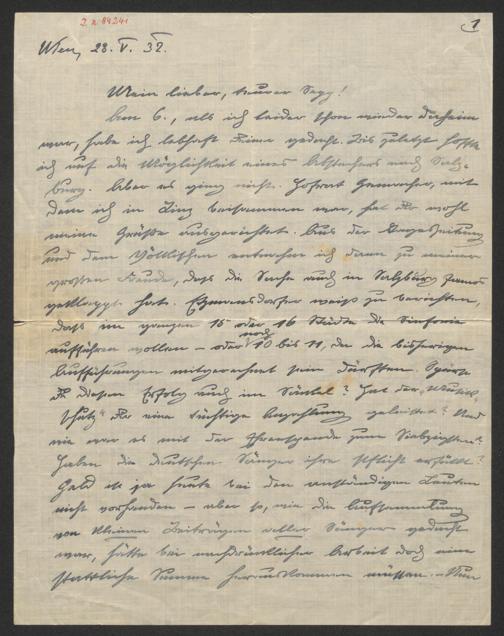 2 n 84241
1
Wien, 28. V. 32.
Mein lieber, teurer Sepp!
Am 6., als ich leider schon wieder daheim
war, habe ich lebhaft Deiner gedacht. Bis zuletzt hoffte
ich auf die Möglichkeit eines Abstechers nach Salz-
burg. Aber es ging nicht. Hofrat, mit
dem ich in Linz beisammen war, hat Dir wohl
meine Grüße ausgerichtet. Aus der Tageszeitung
und dem entnehme ich dann zu meiner
grossen Freude, dass die Sache auch in Salzburg famos
geklappt hat. weiss zu berichten,
dass im ganzen 15 oder 16 Städte die Sinfonie
aufführen wollen – oder noch 10 bis 11, da die bisherigen
Aufführungen mitgerechnet sein dürften. Spürst
Du diesen Erfolg auch im Säckel? Hat der "Musik-
schutz" Dir eine tüchtige geleistet? Und
wie war es mit der Ehrenspende zum Siebzigsten?
Haben die deutschen Sänger ihre Pflicht erfüllt?
Geld ist ja heute bei den anständigen Leuten
nicht vorhanden – aber so, wie die Aufsammlung
von kleinen Beiträgen aller Sänger gedacht
war, hätte bei nachdrücklicher Arbeit doch eine
stattliche Summe herauskommen müssen. – Nun